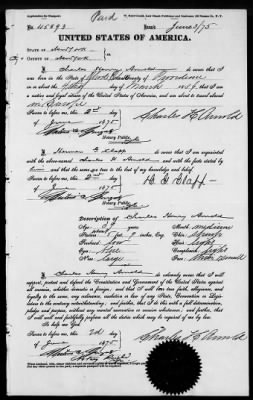 Paid
No. 45893
Issued June 3/75
UNITED STATES OF AMERICA.
STATE OF New York
COUNTY OF New York
I, Charles Henry Arnold do swear that I
was born in the State of Rhode Island, of Providence
on the day of March 1859, that I am
a native and loyal citizen of the United States of America, and am about to travel
in Europe
Sworn to before me, this 2nd day
of June 1875
Charles H. Arnold
Notary Public.
I, Herman G. Clapp do swear that I am acquainted
with the above-named Charles H. Arnold and with the facts stated by
him and that the same are true to the best of my knowledge and belief.
Sworn to before me, this 2nd day
of June 1875
H. G. Clapp
Notary Public.
Description of Charles Henry Arnold
Age: years
Mouth: medium
Stature: feet inches, Eng.
Chin:
Forehead: low
Hair: light
Eyes: blue
Complexion: light
Nose: large
Face:
I, Charles Henry Arnold do solemnly swear that I will
support, protect and defend the Constitution and Government of the United States against
all enemies, whether domestic or foreign, and that I will bear true faith, allegiance, and
loyalty to the same, any ordinance, resolution or law of any State, Convention or Legis-
lature to the contrary notwithstanding; and further, that I do this with a full determination,
pledge and purpose, without any mental reservation or evasion whatsoever; and further, that
I will well and faithfully perform all the duties which may be required of me by law.
So help me God
Sworn to before me, this 2nd day
of June 1875
Charles H. Arnold
Notary Public